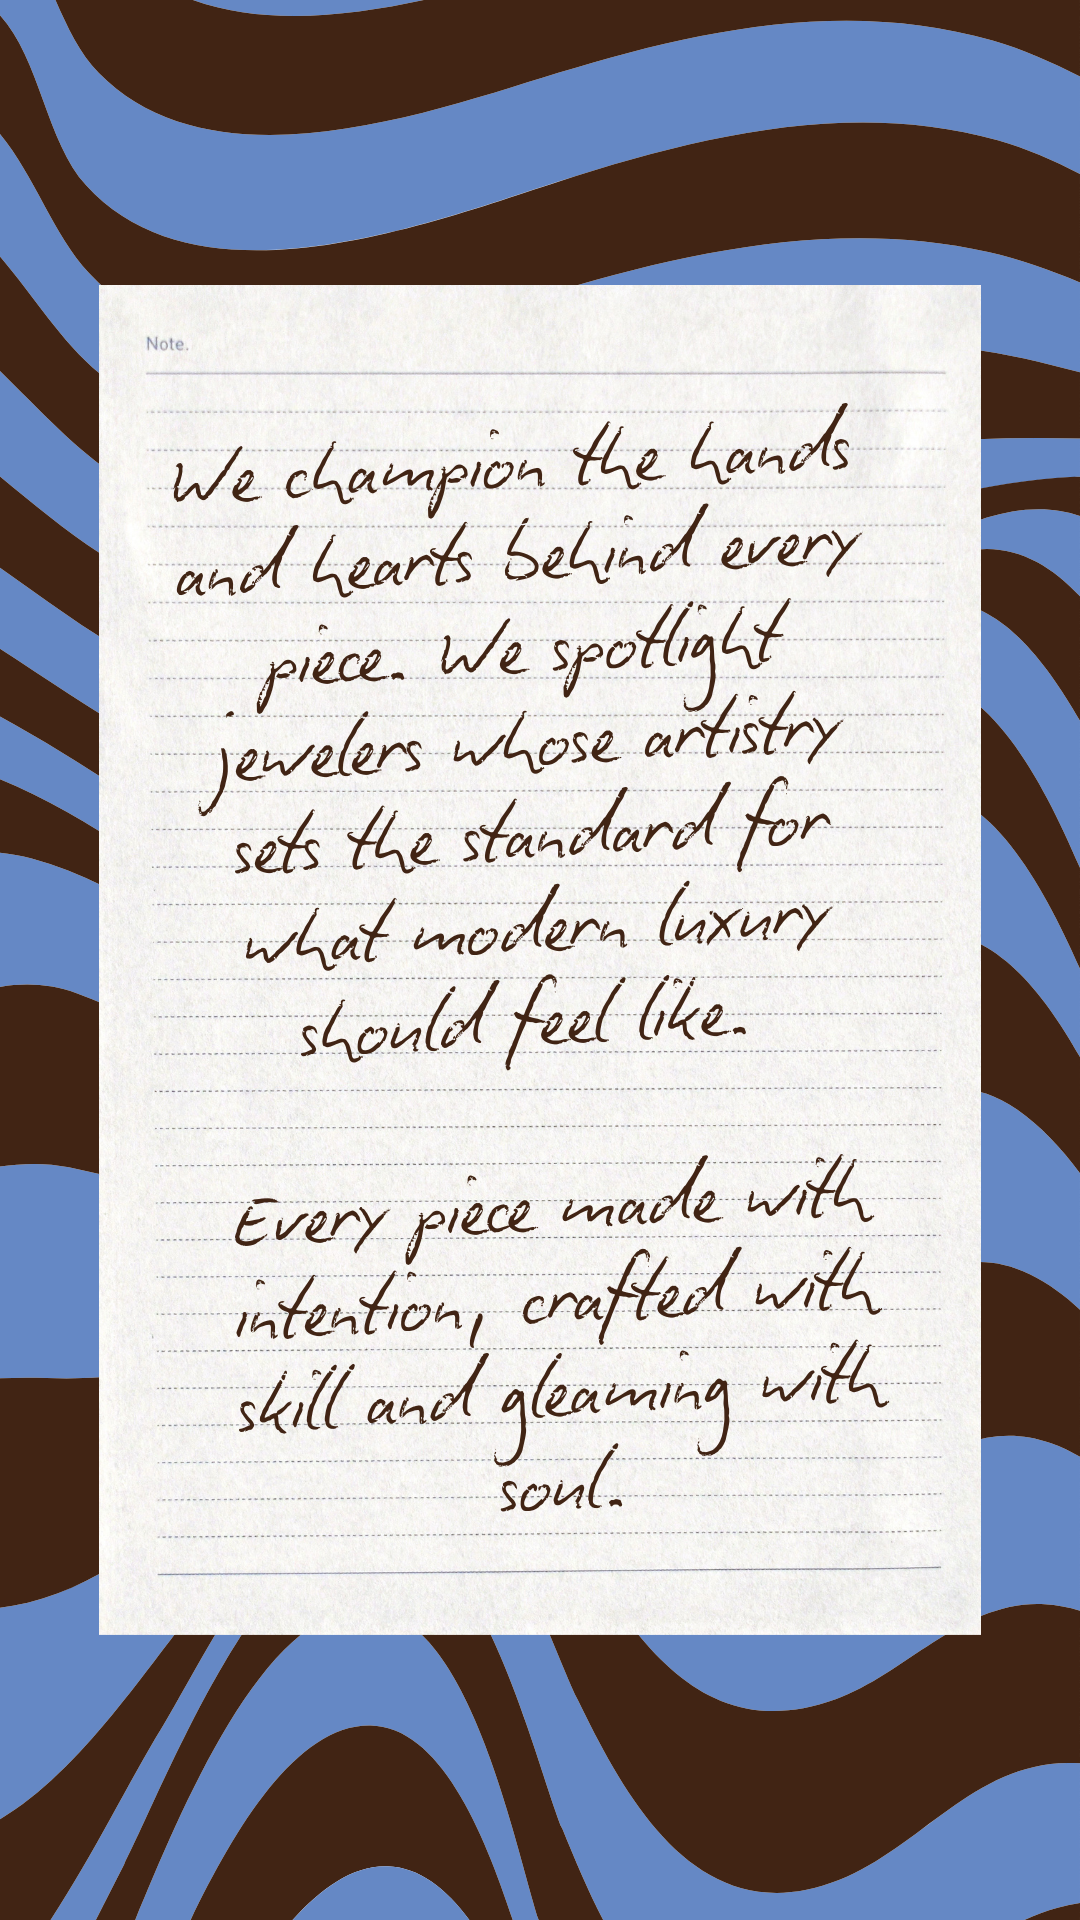 Note.
We champion the hands
and hearts behind every
piece. We spotlight
jewelers whose artistry
sets the standard for
what modern luxury
should feel like.
Every piece made with
intention, crafted with
skill and gleaming with
soul.